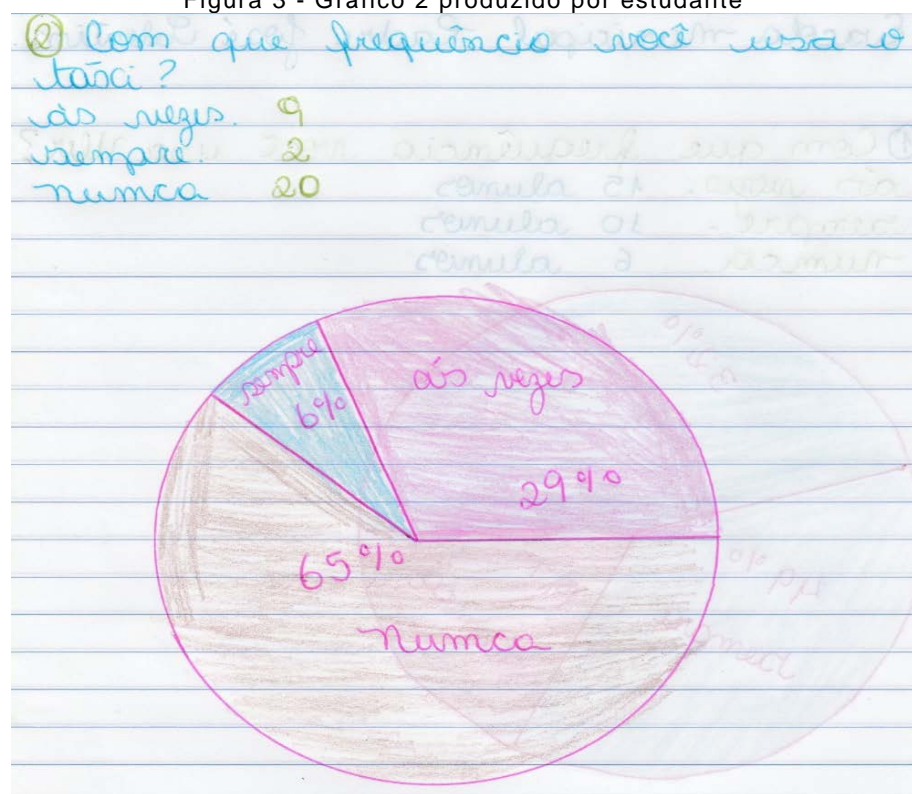 Figura 3 - Gráfico 2 produzido por estudante
② Com que frequência você usa o
táxi?
às vezes. 9
sempre. 2
numca 20
sempre
6%
às vezes
29%
65%
Numca